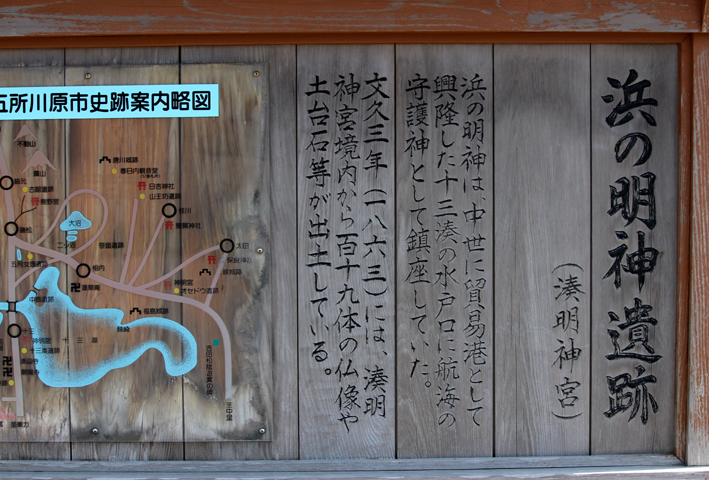 浜の明神遺跡
（湊明神宮）
浜の明神は、中世に貿易港として
興隆した十三湊の水戸口に航海の
守護神として鎮座していた。
文久三年（一八六三）には、湊明
神宮境内から百十九体の仏像や
土台石等が出土している。
五所川原市史跡案内略図
不動山
唐川城跡
春日内観音堂
日吉神社
山王坊遺跡
太田
相内
二ツ沼
大沼
神明宮
オセドウ遺跡
福島城跡
中島遺跡
十三
十三湖